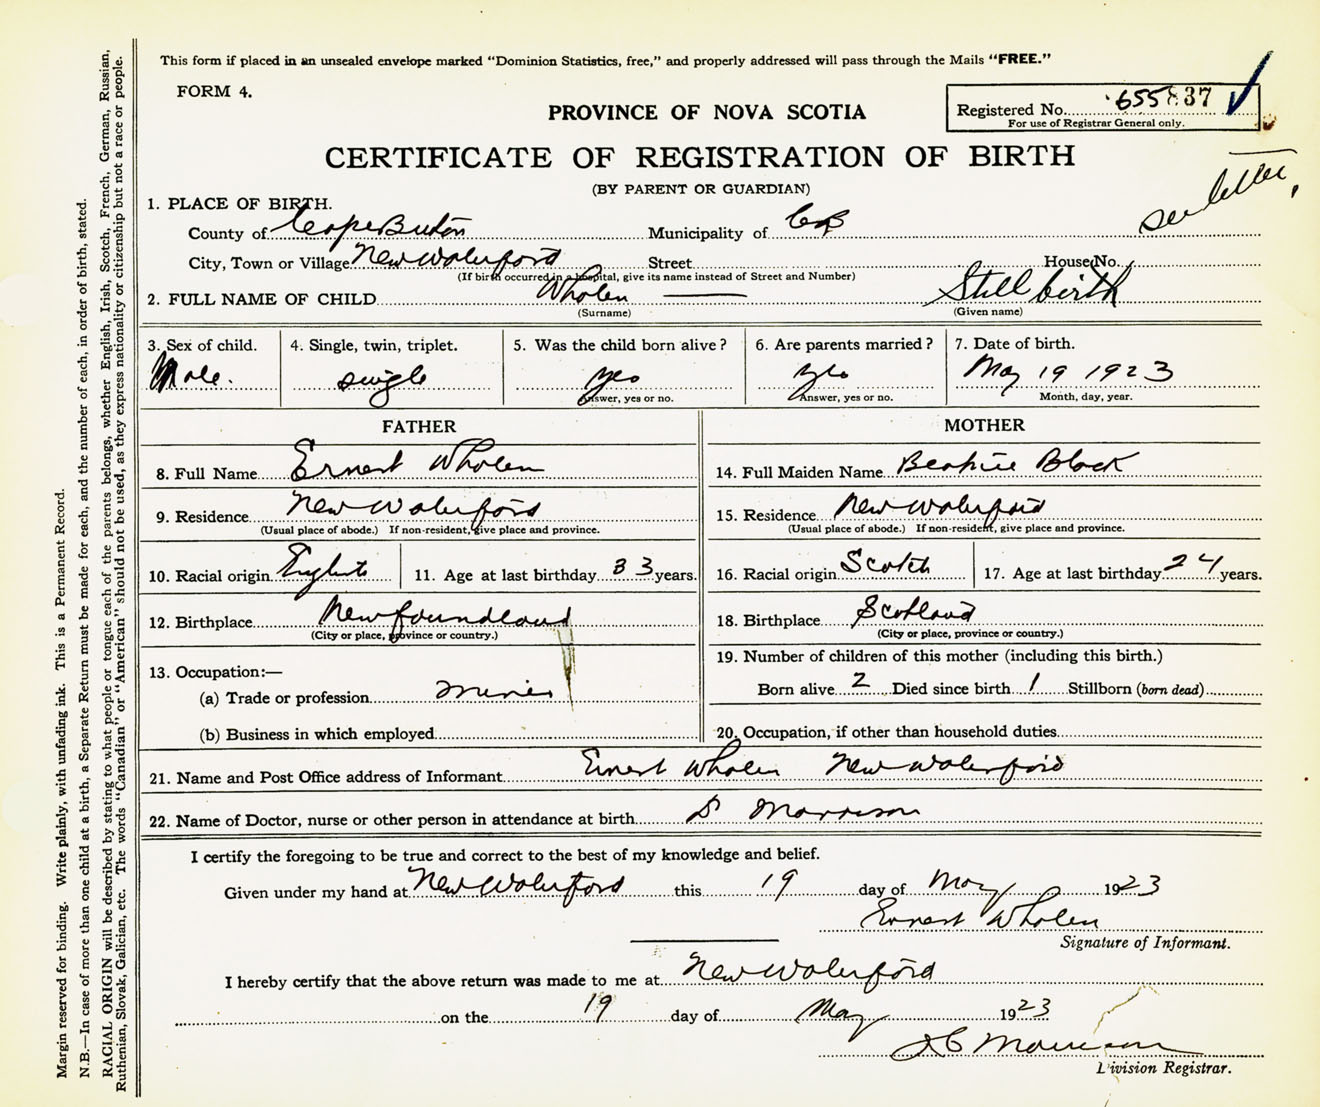 This form if placed in an unsealed envelope marked "Dominion Statistics, free," and properly addressed will pass through the Mails "FREE."
FORM 4.
PROVINCE OF NOVA SCOTIA
Registered No. 655 837
For use of Registrar General only.
CERTIFICATE OF REGISTRATION OF BIRTH
(BY PARENT OR GUARDIAN)
see letter
1. PLACE OF BIRTH.
County of Cape Breton Municipality of CB
City, Town or Village New Waterford Street House No.
(If birth occurred in a hospital, give its name instead of Street and Number)
2. FULL NAME OF CHILD Whalen Still birth
(Surname) (Given name)
3. Sex of child. 4. Single, twin, triplet. 5. Was the child born alive? 6. Are parents married? 7. Date of birth.
Male. single yes yes May 19 1923
Answer, yes or no. Answer, yes or no. Month, day, year.
FATHER MOTHER
8. Full Name Ernest Whalen 14. Full Maiden Name Beatrice Black
9. Residence New Waterford 15. Residence New Waterford
(Usual place of abode.) If non-resident, give place and province. (Usual place of abode.) If non-resident, give place and province.
10. Racial origin English 11. Age at last birthday 33 years. 16. Racial origin Scotch 17. Age at last birthday 24 years.
12. Birthplace Newfoundland 18. Birthplace Scotland
(City or place, province or country.) (City or place, province or country.)
13. Occupation:— 19. Number of children of this mother (including this birth.)
(a) Trade or profession miner Born alive 2 Died since birth 1 Stillborn (born dead)
(b) Business in which employed 20. Occupation, if other than household duties
21. Name and Post Office address of Informant Ernest Whalen New Waterford
22. Name of Doctor, nurse or other person in attendance at birth Morrison
I certify the foregoing to be true and correct to the best of my knowledge and belief.
Given under my hand at New Waterford this 19 day of May 1923
Ernest Whalen
Signature of Informant.
I hereby certify that the above return was made to me at New Waterford
on the 19 day of May 1923
Morrison
Division Registrar.
Margin reserved for binding. Write plainly, with unfading ink. This is a Permanent Record.
N.B.—In case of more than one child at a birth, a Separate Return must be made for each, and the number of each, in order of birth, stated.
RACIAL ORIGIN will be described by stating to what people or tongue each of the parents belongs, whether English, Irish, Scotch, French, German, Russian,
Ruthenian, Slovak, Galician, etc. The words "Canadian" or "American" should not be used, as they express nationality or citizenship but not a race or people.